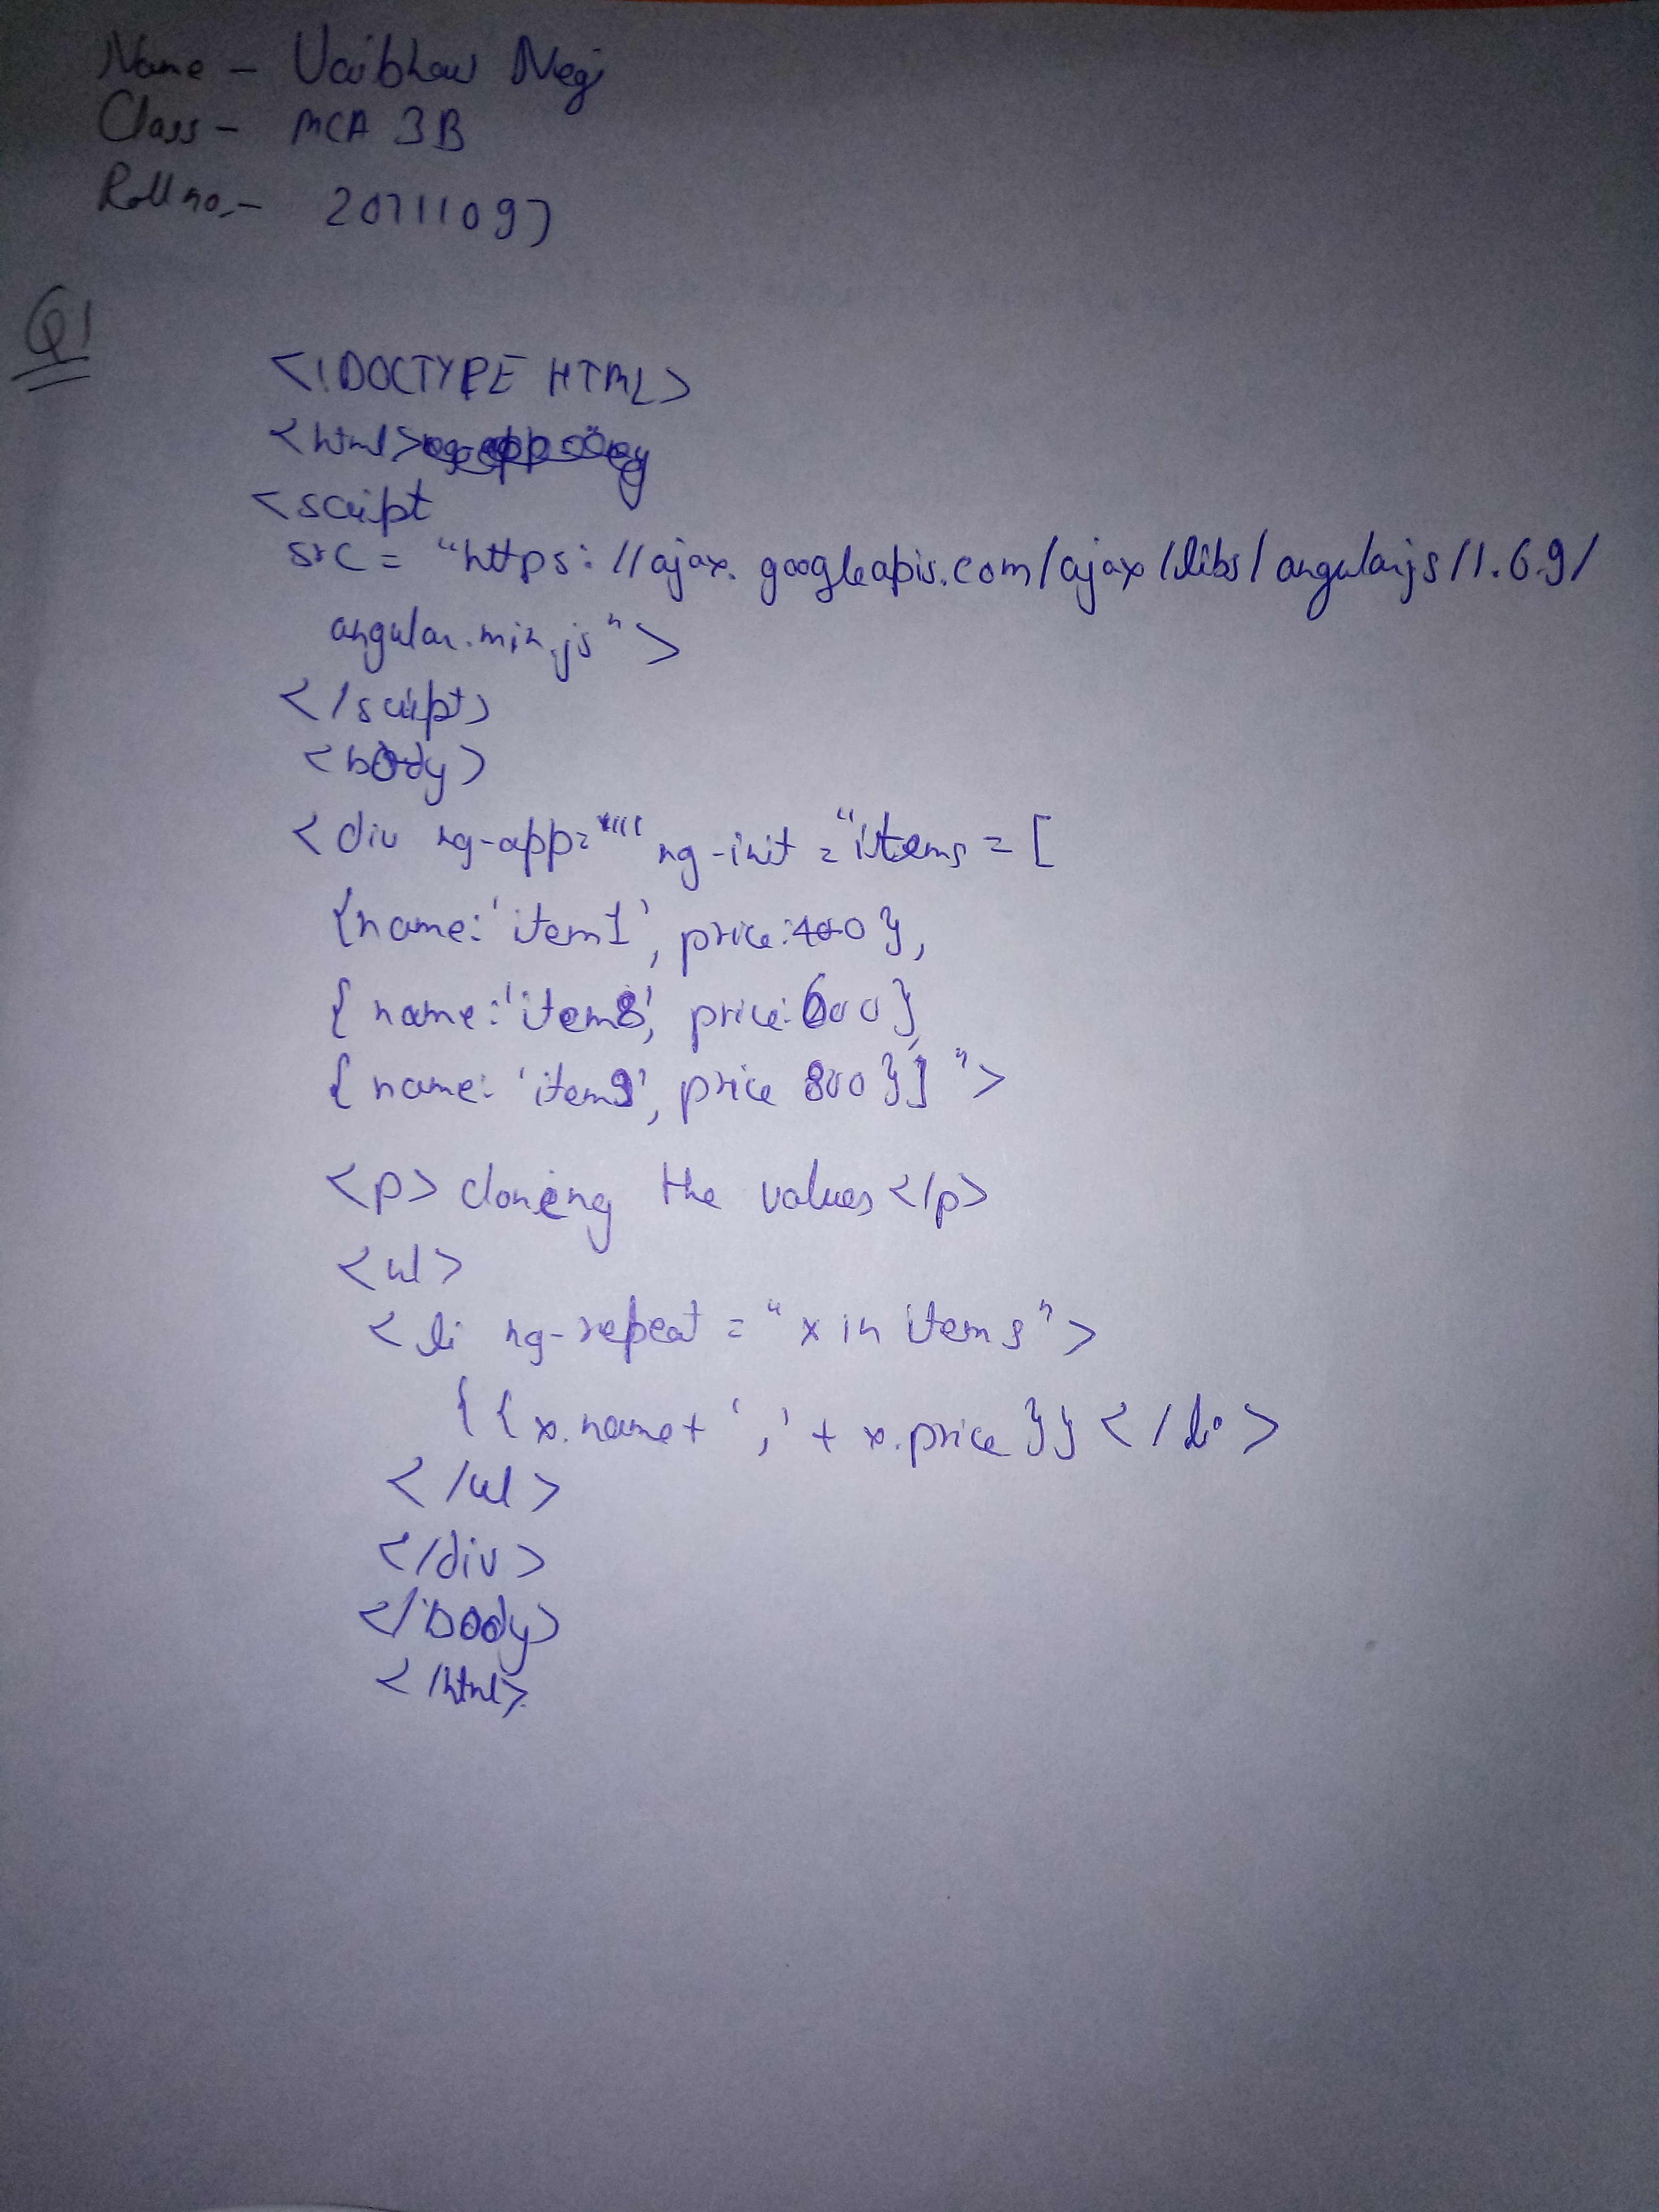 Name - Vaibhav Negi
Class - MCA 3B
Roll no.- 20711097
Q1
<!DOCTYPE HTML>
<html>
<script
src = "https://ajax.googleapis.com/ajax/libs/angularjs/1.6.9/
angular.min.js">
</script>
<body>
<div ng-app="" ng-init = "items = [
{name:'item1', price:400},
{name:'item8', price:600},
{name: 'item9', price 800}]">
<p> cloneing the values </p>
<ul>
<li ng-repeat = "x in items">
{{x.name+ ',' + x.price}} </li>
</ul>
</div>
</body>
</html>